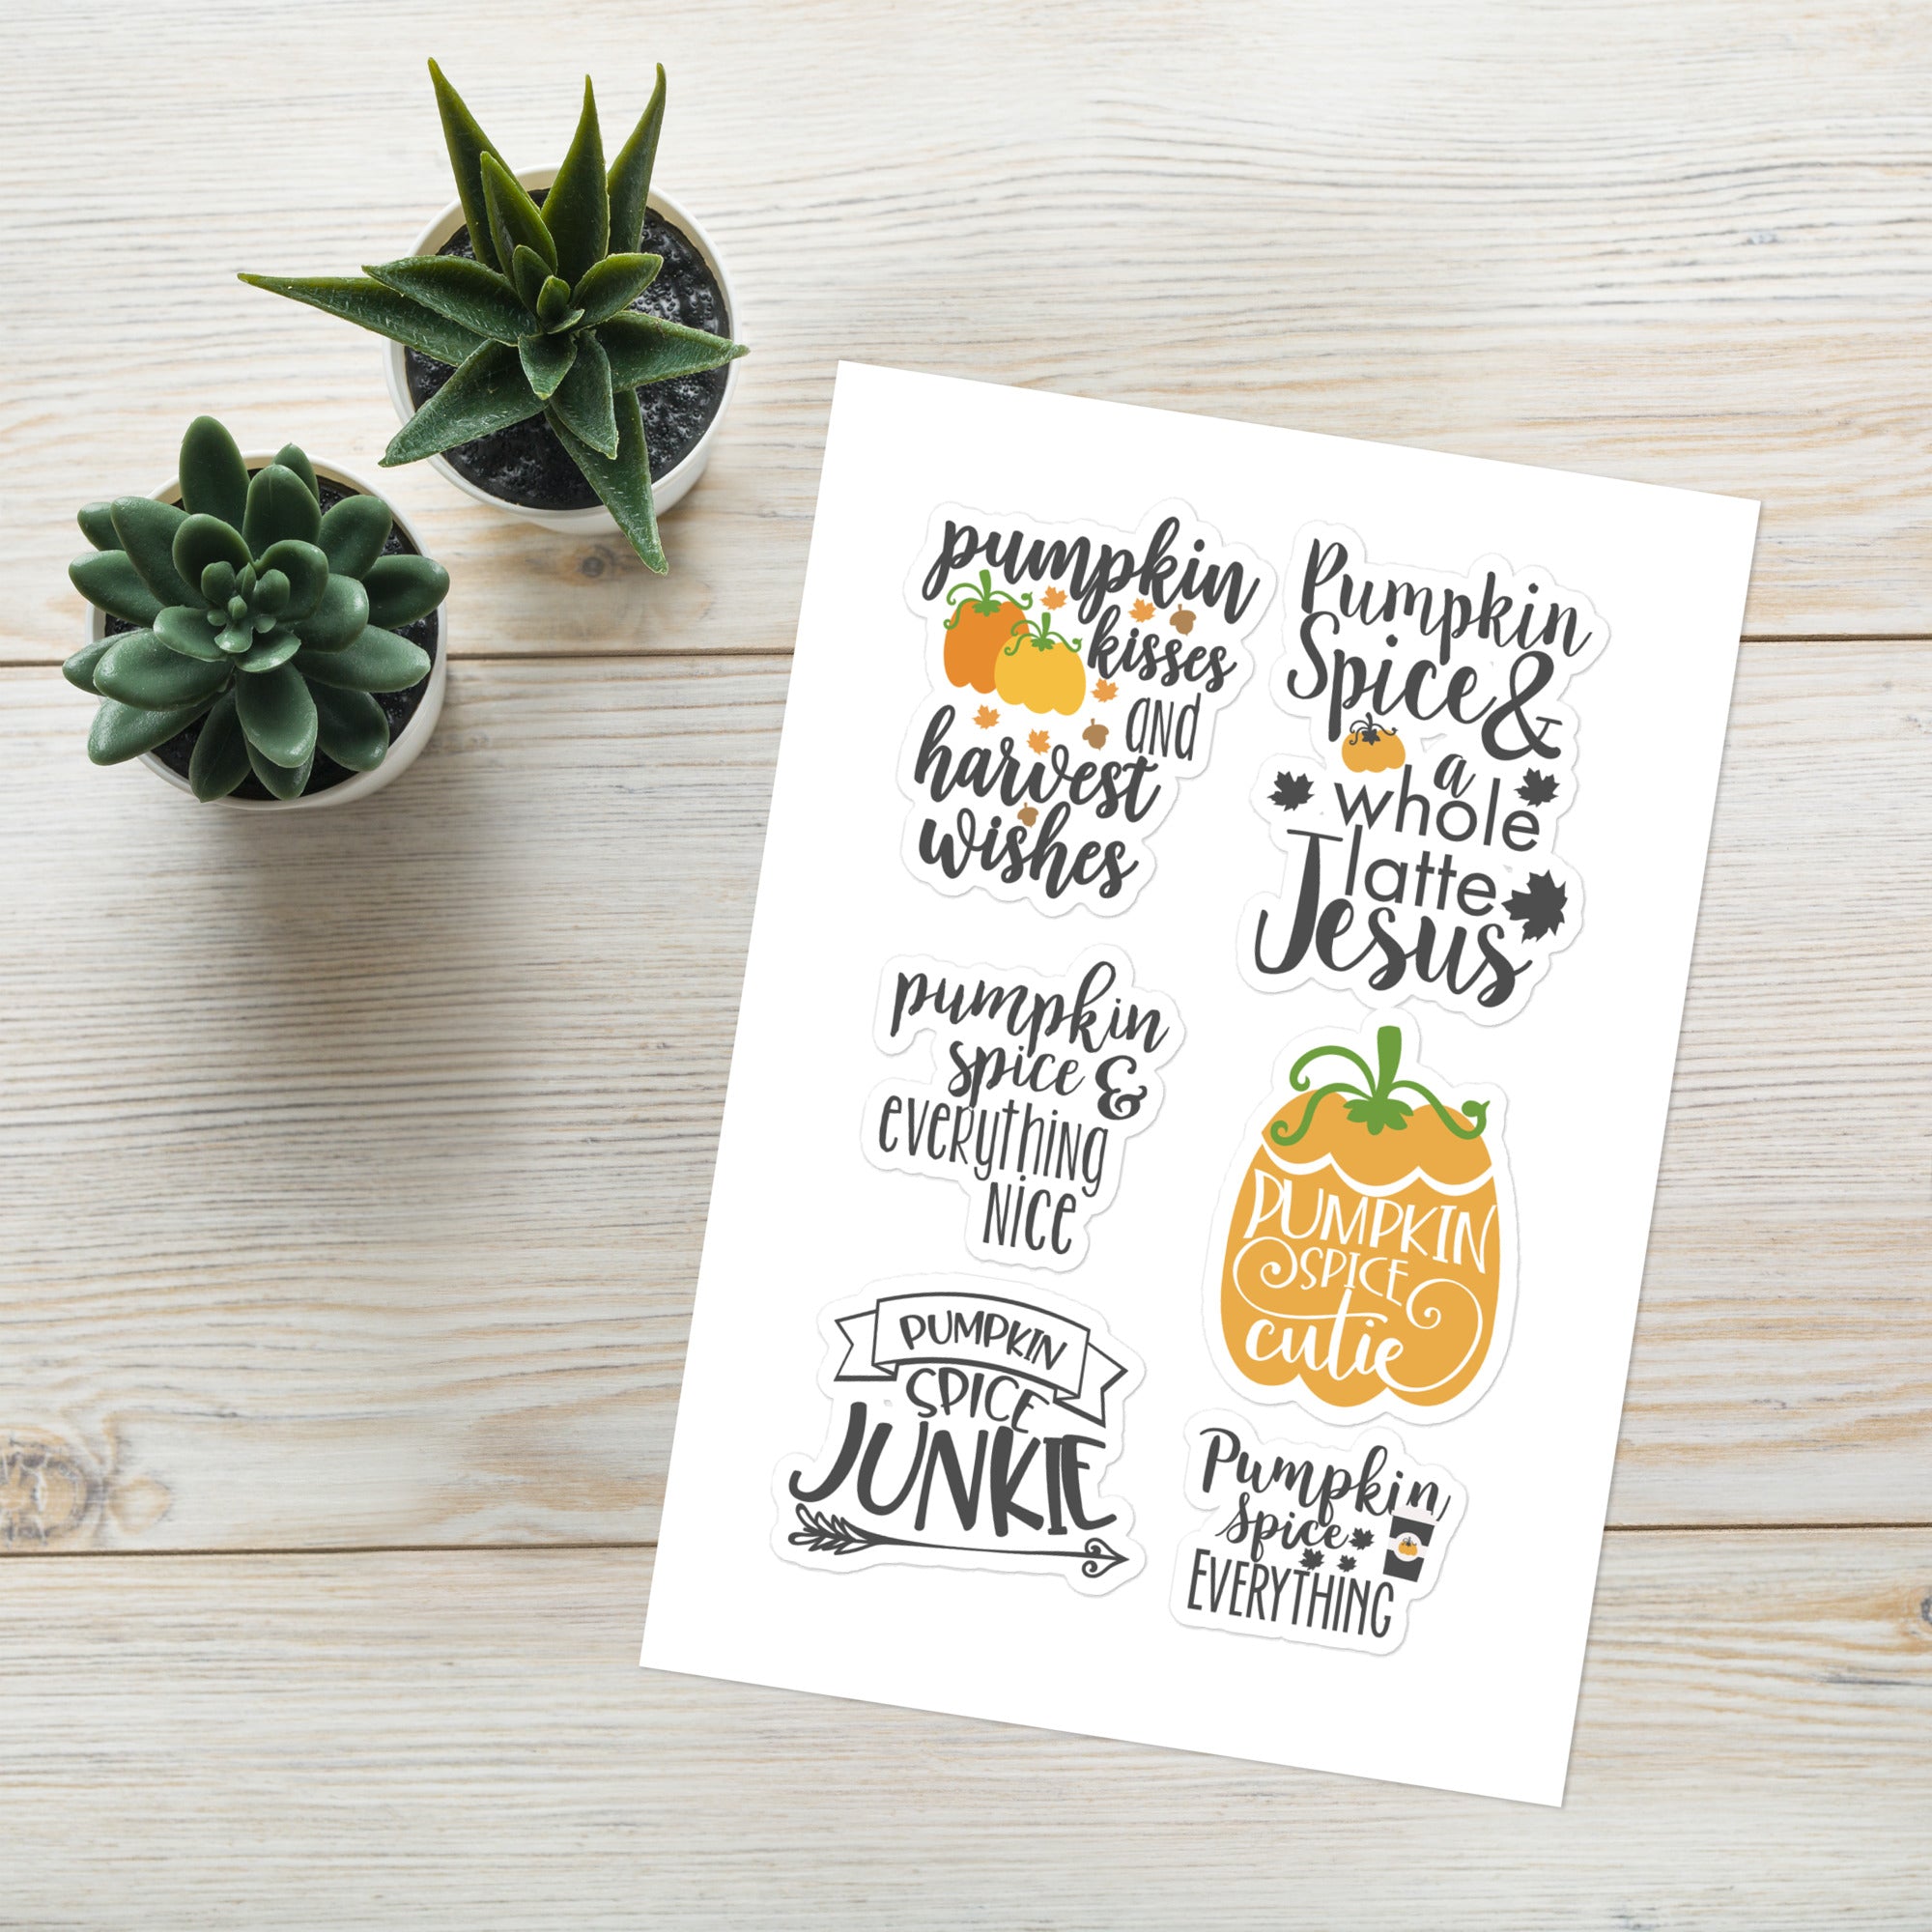 pumpkin
kisses
and
harvest
wishes
Pumpkin
Spice &
a
whole
latte
Jesus
pumpkin
spice &
everything
nice
PUMPKIN
SPICE
cutie
PUMPKIN
SPICE
JUNKIE
Pumpkin
Spice
EVERYTHING